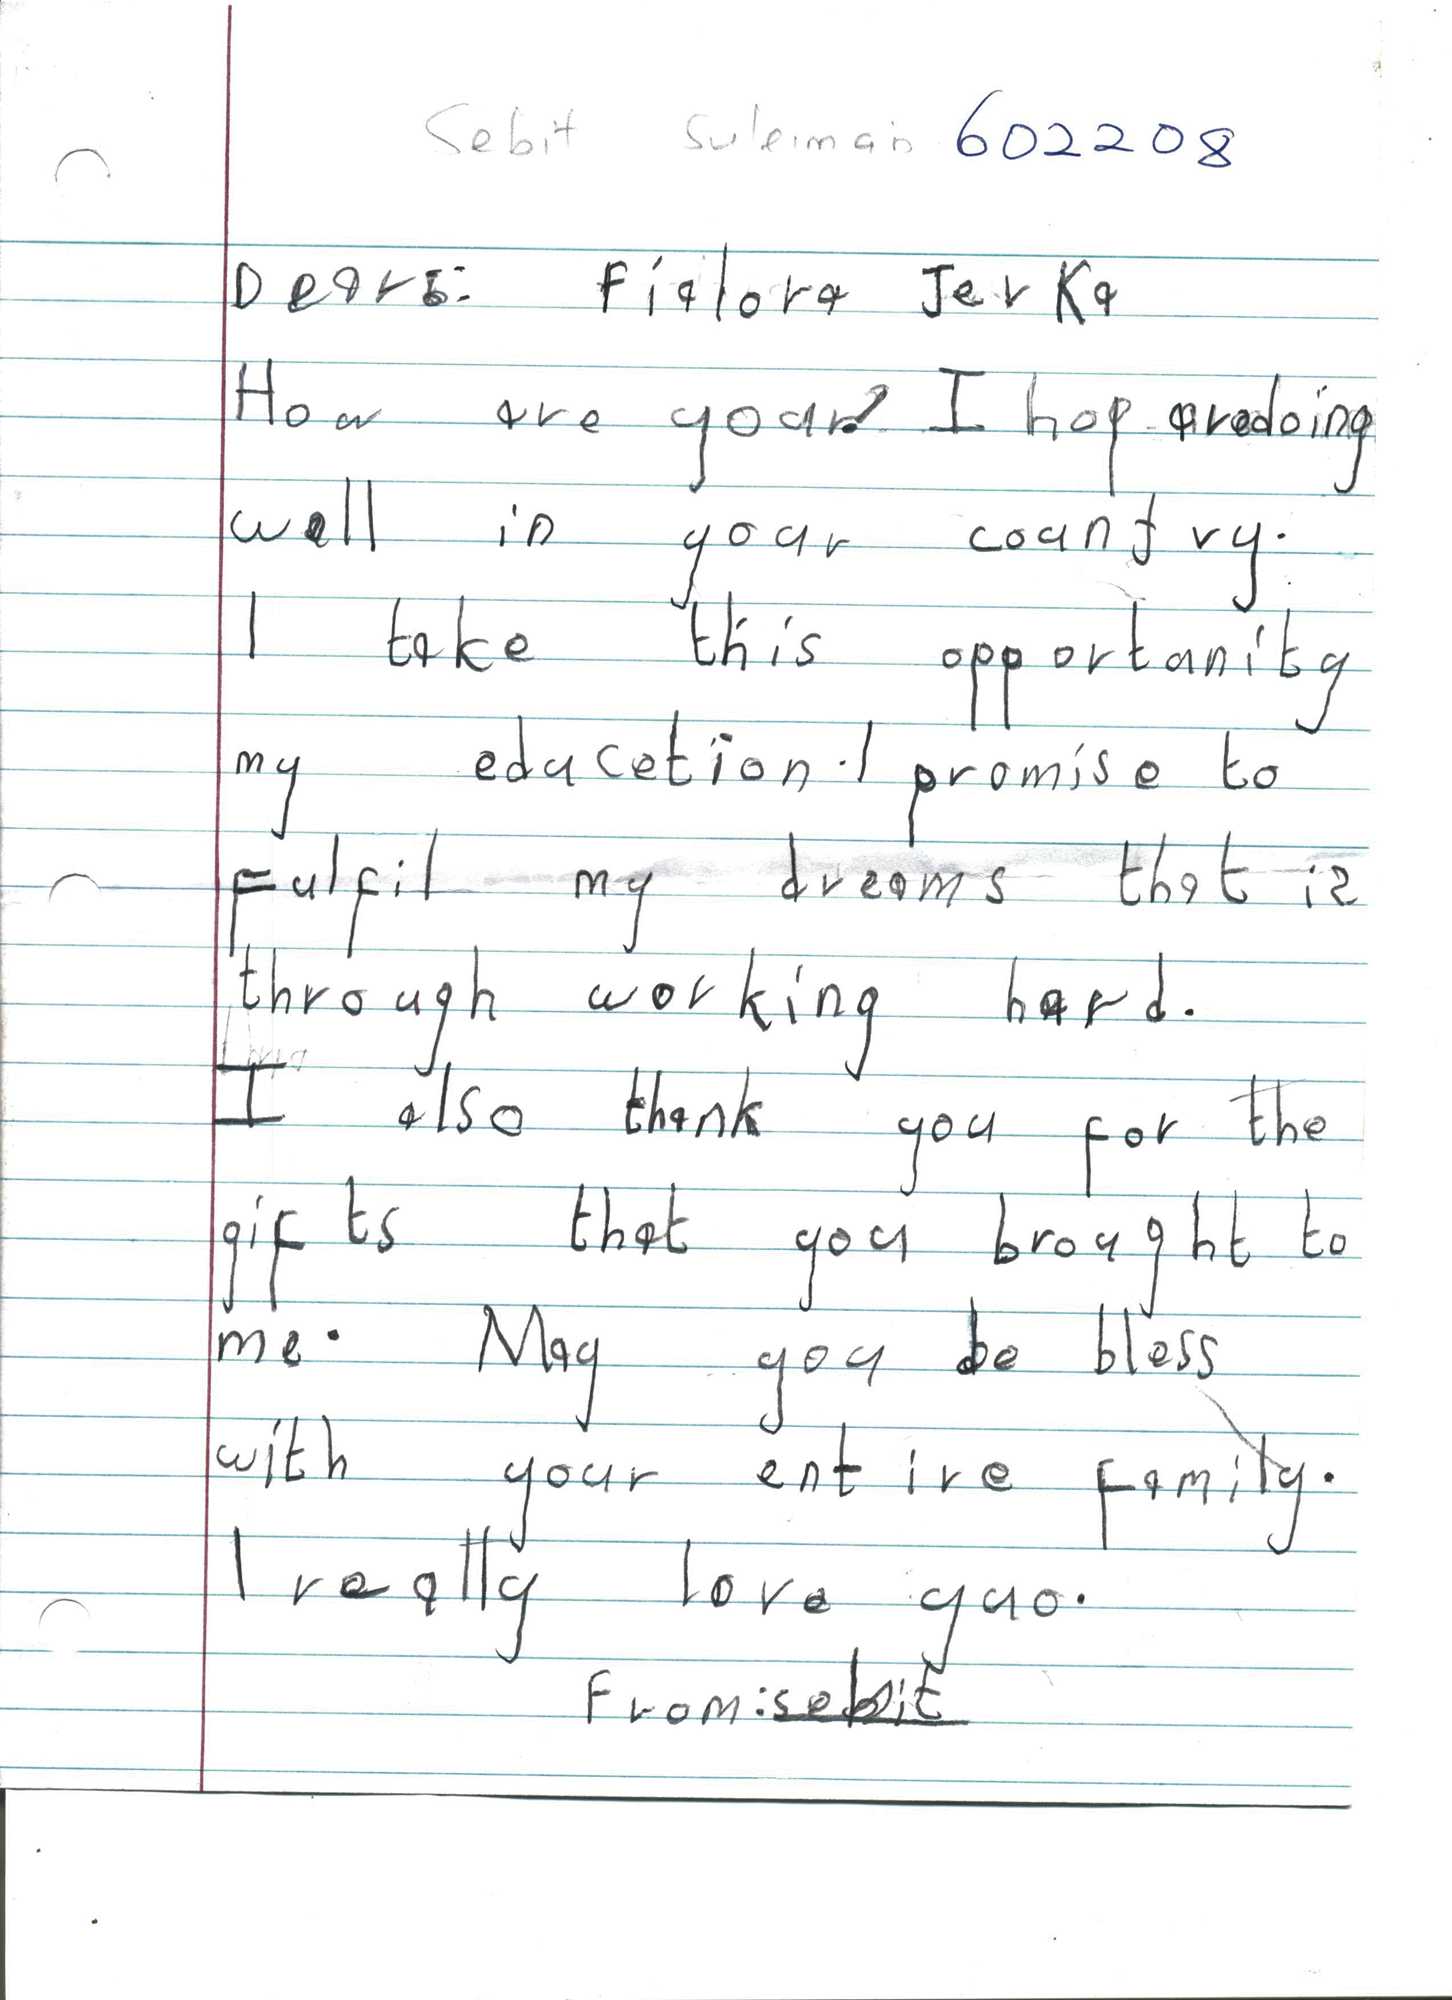 Sebit Suleiman 602208
Dears: Fialora Jerka
How are your? I hop aredoing
well in your country.
I take this opportunity
my education. I promise to
Fulfil my dreams that is
through working hard.
I also thank you for the
gifts that you brought to
me. May you be bless
with your entire family.
I really love yuo.
From: sebit